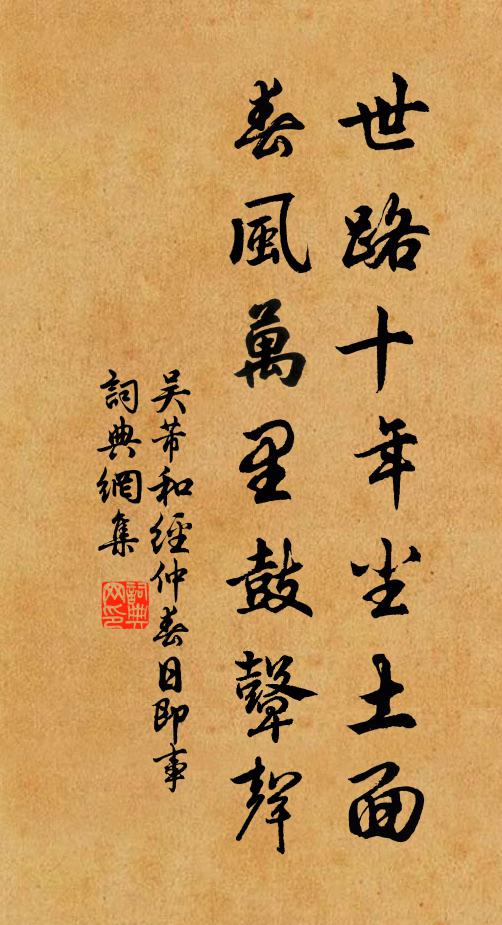 世路十年尘土面
春風萬里鼓鼙聲
吴芾和經仲春日即事
詞典網集
詞典网印